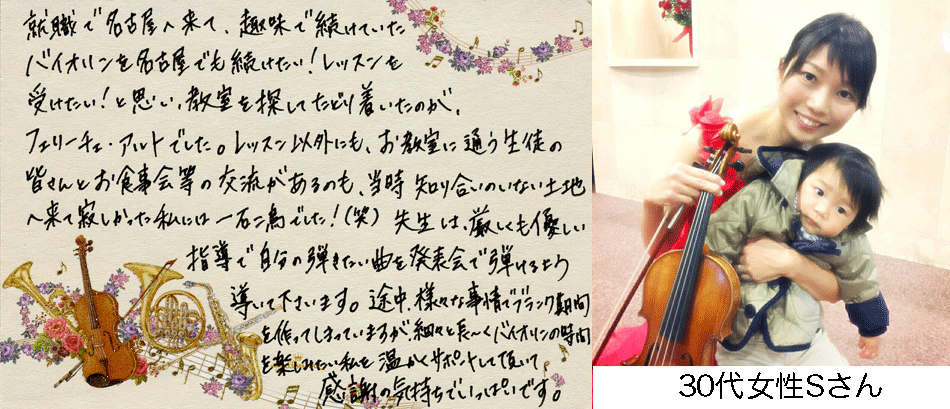 就職で名古屋へ来て、趣味で続けていた
バイオリンを名古屋でも続けたい！レッスンを
受けたい！と思い、教室を探してたどり着いたのが、
フェリーチェ・アルトでした。レッスン以外にも、お教室に通う生徒の
皆さんとお食事会等の交流があるのも、当時知り合いのいない土地
へ来て寂しかった私には一石二鳥でした！（笑）先生は、厳しくも優しい
指導で自分の弾きたい曲を発表会で弾けるよう
導いて下さいます。途中、様々な事情でブランク期間
を作ってしまっていますが、細々と長〜くバイオリンの時間
を楽しみたい私を温かくサポートして頂いて、
感謝の気持ちでいっぱいです。
30代女性Sさん